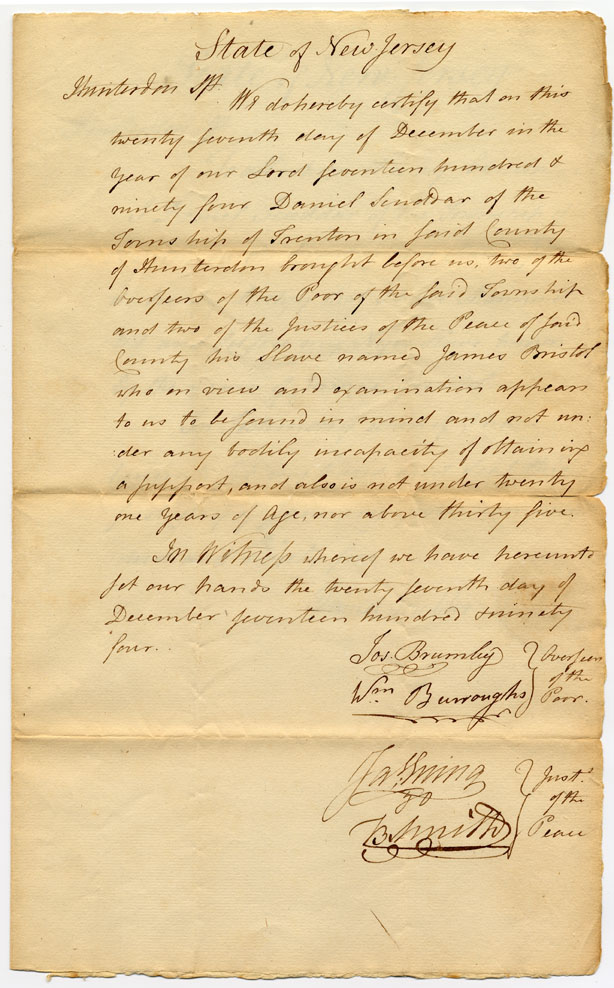 State of New Jersey
Hunterdon Ss.
We do hereby certify that on this
twenty seventh day of December in the
year of our Lord seventeen hundred &
ninety four Daniel of the
Township of Trenton in said County
of Hunterdon brought before us, two of the
Overseers of the Poor of the said Township
and two of the Justices of the Peace of said
County his Slave named James Bristol
who on view and examination appears
to us to be sound in mind and not un:
:der any bodily incapacity of obtaining
a support, and also is not under twenty
one years of Age, nor above thirty five.
In Witness whereof we have hereunto
set our hands the twenty seventh day of
December seventeen hundred & ninety
four.
Jos. Brumley
Wm Burroughs
Overseers
of the
Poor.
B Smith
Just.s
of the
Peace